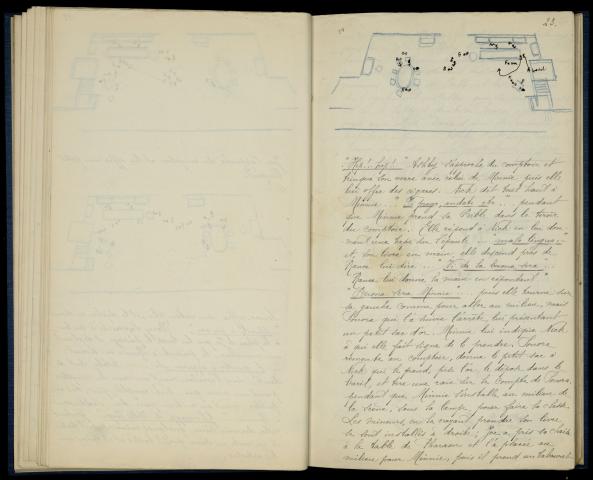 23.
"Hip!.. hip!.." Ashby s'approche du comptoir et
trinque son verre avec celui de Minnie puis elle
lui offre des cigares. Nick dit tout haut à
Minnie... " pendant
que Minnie prend sa Bible dans le tiroir
du comptoir. Elle répond à Nick en lui don-
nant une tape sur l'épaule — "mala lingua.."
et, son livre en main, elle descend près de
Rance lui dire... "Vi do la buona sera.."
Rance lui donne la main en répondant
"Buona sera Minnie"... puis elle tourne sur
sa gauche comme pour aller au milieu, mais
Sonora qui l'a suivie l'arrête, lui présentant
un petit sac d'or. Minnie lui indique Nick
à qui elle fait signe de le prendre. Sonora
remonte au comptoir, donne le petit sac à
Nick qui le prend, pèse l'or, le dépose dans le
baril, et tire une raie sur le compte de Sonora,
pendant que Minnie s'installe au milieu de
la scène, sous la lampe pour faire la classe.
Les mineurs, en la voyant prendre son livre
se sont installés à droite; Joe a pris sa chaise
à la table de Pharaon et l'a placée au
milieu pour Minnie, puis il prend un tabouret